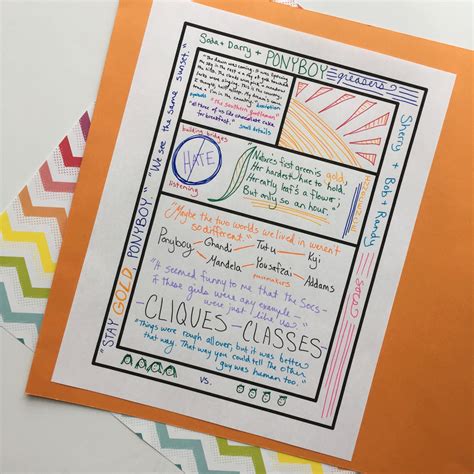 Soda + Darry + PONYBOY
greasers
"The dawn was coming. It was lightening
"the southern gentleman"
"all three of us like chocolate cake
for breakfast."
small details
building bridges
HATE
listening
Nature's first green is gold,
Her hardest hue to hold.
Her early leaf's a flower;
But only so an hour.
Sherry + Bob + Randy
socs
"Maybe the two worlds we lived in weren't
so different."
Ghandi Tutu Kyi
Ponyboy Mandela Yousafzai Addams
peacemakers
"It seemed funny to me that the Socs -
if these girls were any example -
were just like us."
CLIQUES - CLASSES
"Things were rough all over, but it was better
that way. That way you could tell the other
guy was human too."
vs.
"STAY GOLD, PONYBOY." "We see the same sunset."